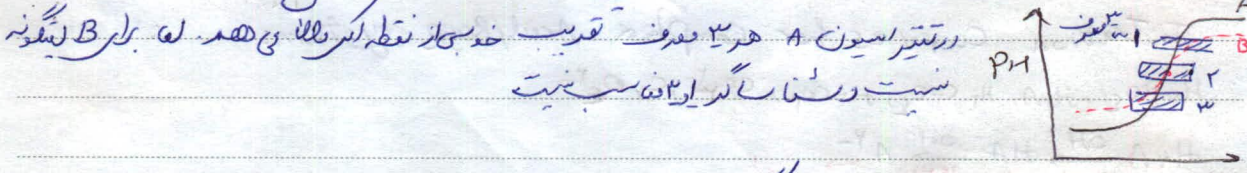 در تیتراسیون A هر ۳ معرف تقریب خوبی از نقطه اکی والان می دهد. اما برای B اینگونه
نیست و شناساگر ۱و۳ مناسب نیست
۳ معرف
A
۱
B
PH
۲
۳